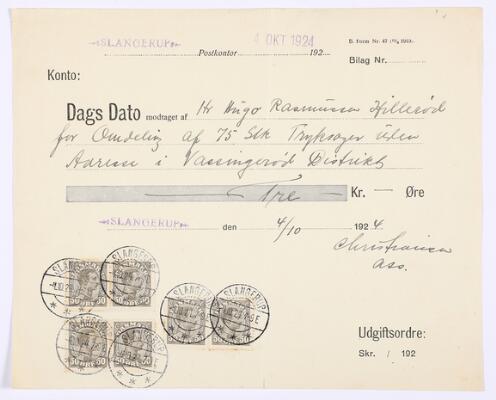 SLANGERUP 4 OKT 1924
Postkontor 192
B. Form Nr. 47
Bilag Nr.
Konto:
Dags Dato modtaget af Hr Hugo Rasmussen Hillerød
for Omdeling af 75 Stk Tryksager uden
Adresse i Vassingerød Distrikt
Tre Kr. — Øre
SLANGERUP den 4/10 1924.
Christiansen
Ass.
SLANGERUP
SLANGERUP
SLANGERUP
SLANGERUP
SLANGERUP
SLANGERUP
50 ØRE 50
50 ØRE 50
Udgiftsordre:
Skr. / 192